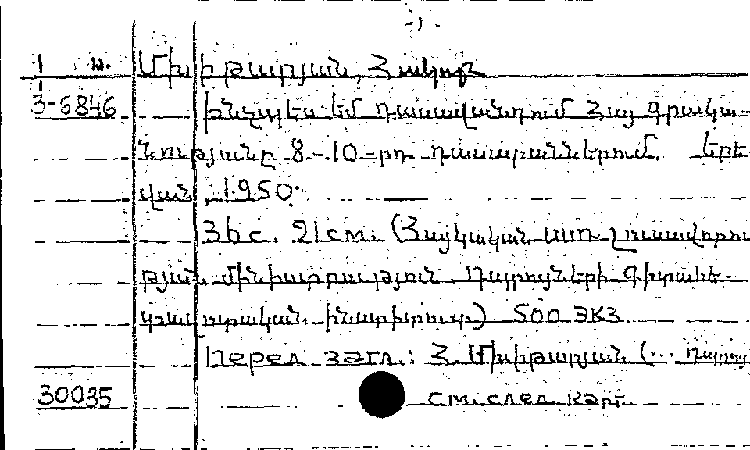 -1-
1 և. Մխիթարյան, Հակոբ
3-6846 Ինչպես եմ դասավանդում հայ գրակա-
նությունը 8-10-րդ դասարաններում. Երե-
վան, 1950.
36 с. 21 см. (Հայկական ՍՍՌ լուսավորու
թյան մինիստրություն. Դպրոցների գիտահե-
տազոտական ինստիտուտ) 500 экз
Перед загл.: Հ. Մխիթարյան (... դպրոց
30035 см. след карт.